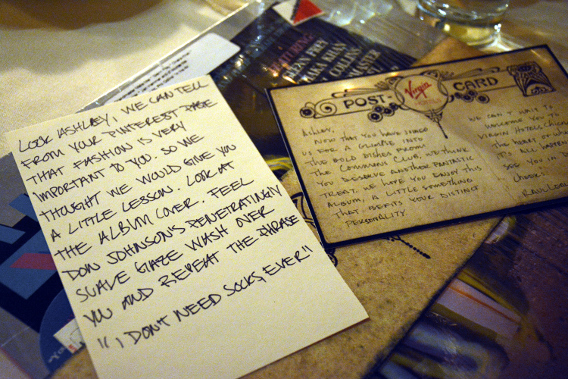 FEATURING
KHAN
COLLINS
MASTER
LOOK ASHLEY, WE CAN TELL
FROM YOUR PINTEREST PAGE
THAT FASHION IS VERY
IMPORTANT TO YOU. SO WE
THOUGHT WE WOULD GIVE YOU
A LITTLE LESSON. LOOK AT
THE ALBUM COVER. FEEL
DON JOHNSON'S PENETRATINGLY
SUAVE GLAZE WASH OVER
YOU AND REPEAT THE PHRASE
"I DON'T NEED SOCKS, EVER"
POST Virgin CARD
ASHLEY,
NOW THAT YOU HAVE
HAD A GLIMPSE INTO
THE BOLD DISHES FROM
THE COMMONS CLUB, WE THINK
YOU DESERVE ANOTHER FANTASTIC
TREAT. WE HOPE YOU ENJOY THIS
ALBUM, A LITTLE SOMETHING
THAT BEFITS YOUR DISTINCT
PERSONALITY
WE CAN'T WAIT TO
WELCOME YOU TO
VIRGIN HOTELS
THE HEART OF
SEE YOU IN